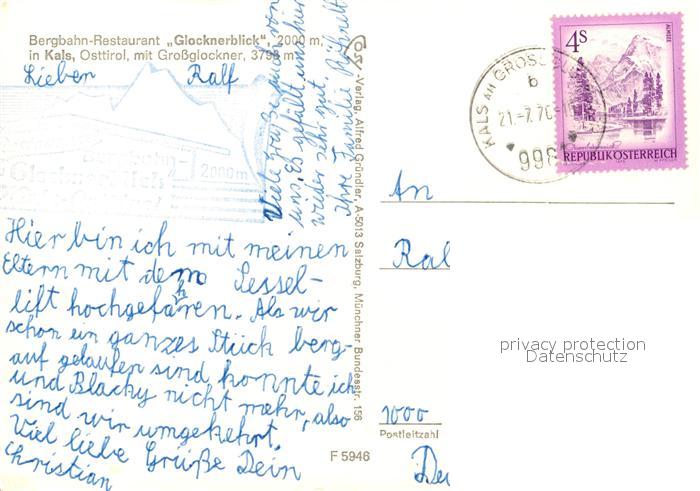 Bergbahn-Restaurant „Glocknerblick", 2000 m,
in Kals, Osttirol, mit Großglockner, 3798 m
Lieber Ralf
2000m
Hier bin ich mit meinen
Eltern mit dem Sessel-
lift hochgefahren. Als wir
schon ein ganzes Stück berg-
auf gelaufen sind konnte ich
und Blacky nicht mehr, also
sind wir umgekehrt.
Viel liebe Grüße Dein
Christian
Viele Grüße auch von
uns. Es gefällt uns hier
wieder sehr gut.
Ihre Familie
-Verlag, Alfred Gründler, A-5013 Salzburg, Münchner Bundesstr. 156
F 5946
KALS AM
b
21.-7.76
4S
ALMSEE
REPUBLIK ÖSTERREICH
An
Ral
privacy protection
Datenschutz
1000
Postleitzahl